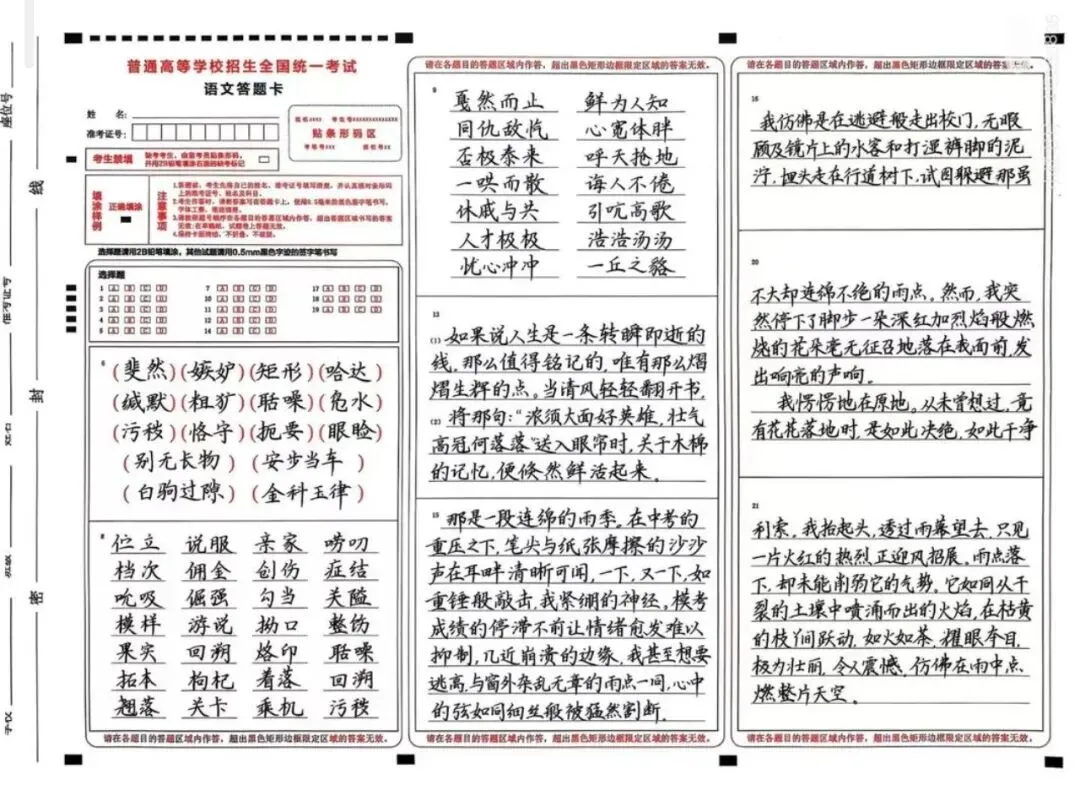 座位号
线
准考证号
封
密
学校
普通高等学校招生全国统一考试
语文答题卡
姓 名:
准考证号:
贴条形码区
考生禁填
缺考考生,由监考员贴条形码,
并用2B铅笔填涂右面的缺考标记
填涂样例
正确填涂
注意事项
选择题请用2B铅笔填涂,其他试题请用0.5mm黑色字迹的签字笔书写
选择题
1 A B C D 7 A B C D 17 A B C D
2 A B C D 10 A B C D 18 A B C D
3 A B C D 11 A B C D 19 A B C D
4 A B C D 12 A B C D
5 A B C D 14 A B C D
6
(斐然)(嫉妒)(矩形)(哈达)
(缄默)(粗犷)(聒噪)(危水)
(污秽)(恪守)(扼要)(眼睑)
(别无长物) (安步当车)
(白驹过隙) (金科玉律)
8
伫立 说服 亲家 唠叨
档次 佣金 创伤 症结
吮吸 倔强 勾当 关隘
模样 游说 拗口 整饬
果实 回溯 烙印 聒噪
拓本 枸杞 着落 回溯
翘落 关卡 乘机 污秽
请在各题目的答题区域内作答,超出黑色矩形边框限定区域的答案无效。
请在各题目的答题区域内作答,超出黑色矩形边框限定区域的答案无效。
9
戛然而止 鲜为人知
同仇敌忾 心宽体胖
否极泰来 呼天抢地
一哄而散 诲人不倦
休戚与共 引吭高歌
人才极极 浩浩汤汤
忧心冲冲 一丘之貉
13
(1) 如果说人生是一条转瞬即逝的
线,那么值得铭记的,唯有那么熠
熠生辉的点。当清风轻轻翻开书,
(2) 将那句:“浓须大面好英雄,壮气
高冠何落落”送入眼帘时,关于木棉
的记忆,便倏然鲜活起来。
15
那是一段连绵的雨季。在中考的
重压之下,笔尖与纸张摩擦的沙沙
声在耳畔清晰可闻,一下,又一下,如
重锤般敲击我紧绷的神经。模考
成绩的停滞不前让情绪愈发难以
抑制,几近崩溃的边缘,我甚至想要
逃离,与窗外杂乱无章的雨点一同,心中
的弦如同细丝般被猛然割断。
请在各题目的答题区域内作答,超出黑色矩形边框限定区域的答案无效。
请在各题目的答题区域内作答,超出黑色矩形边框限定区域的答案无效。
16
我仿佛是在逃避般走出校门,无暇
顾及镜片上的水客和打湿裤脚的泥
泞,扭头走在行道树下,试图躲避那虽
20
不大却连绵不绝的雨点。然而,我突
然停下了脚步一朵深红加烈焰般燃
烧的花朵毫无征召地落在我面前,发
出响亮的声响。
我愣愣地在原地。从未曾想过,竟
有花花落地时,是如此决绝,如此干净
21
利索。我抬起头,透过雨幕望去,只见
一片火红的热烈正迎风招展。雨点落
下,却未能削弱它的气势。它如同从干
裂的土壤中喷涌而出的火焰,在枯黄
的枝丫间跃动,如火如荼,耀眼夺目,
极为壮丽,令人震憾,仿佛在雨中点
燃整片天空。
请在各题目的答题区域内作答,超出黑色矩形边框限定区域的答案无效。